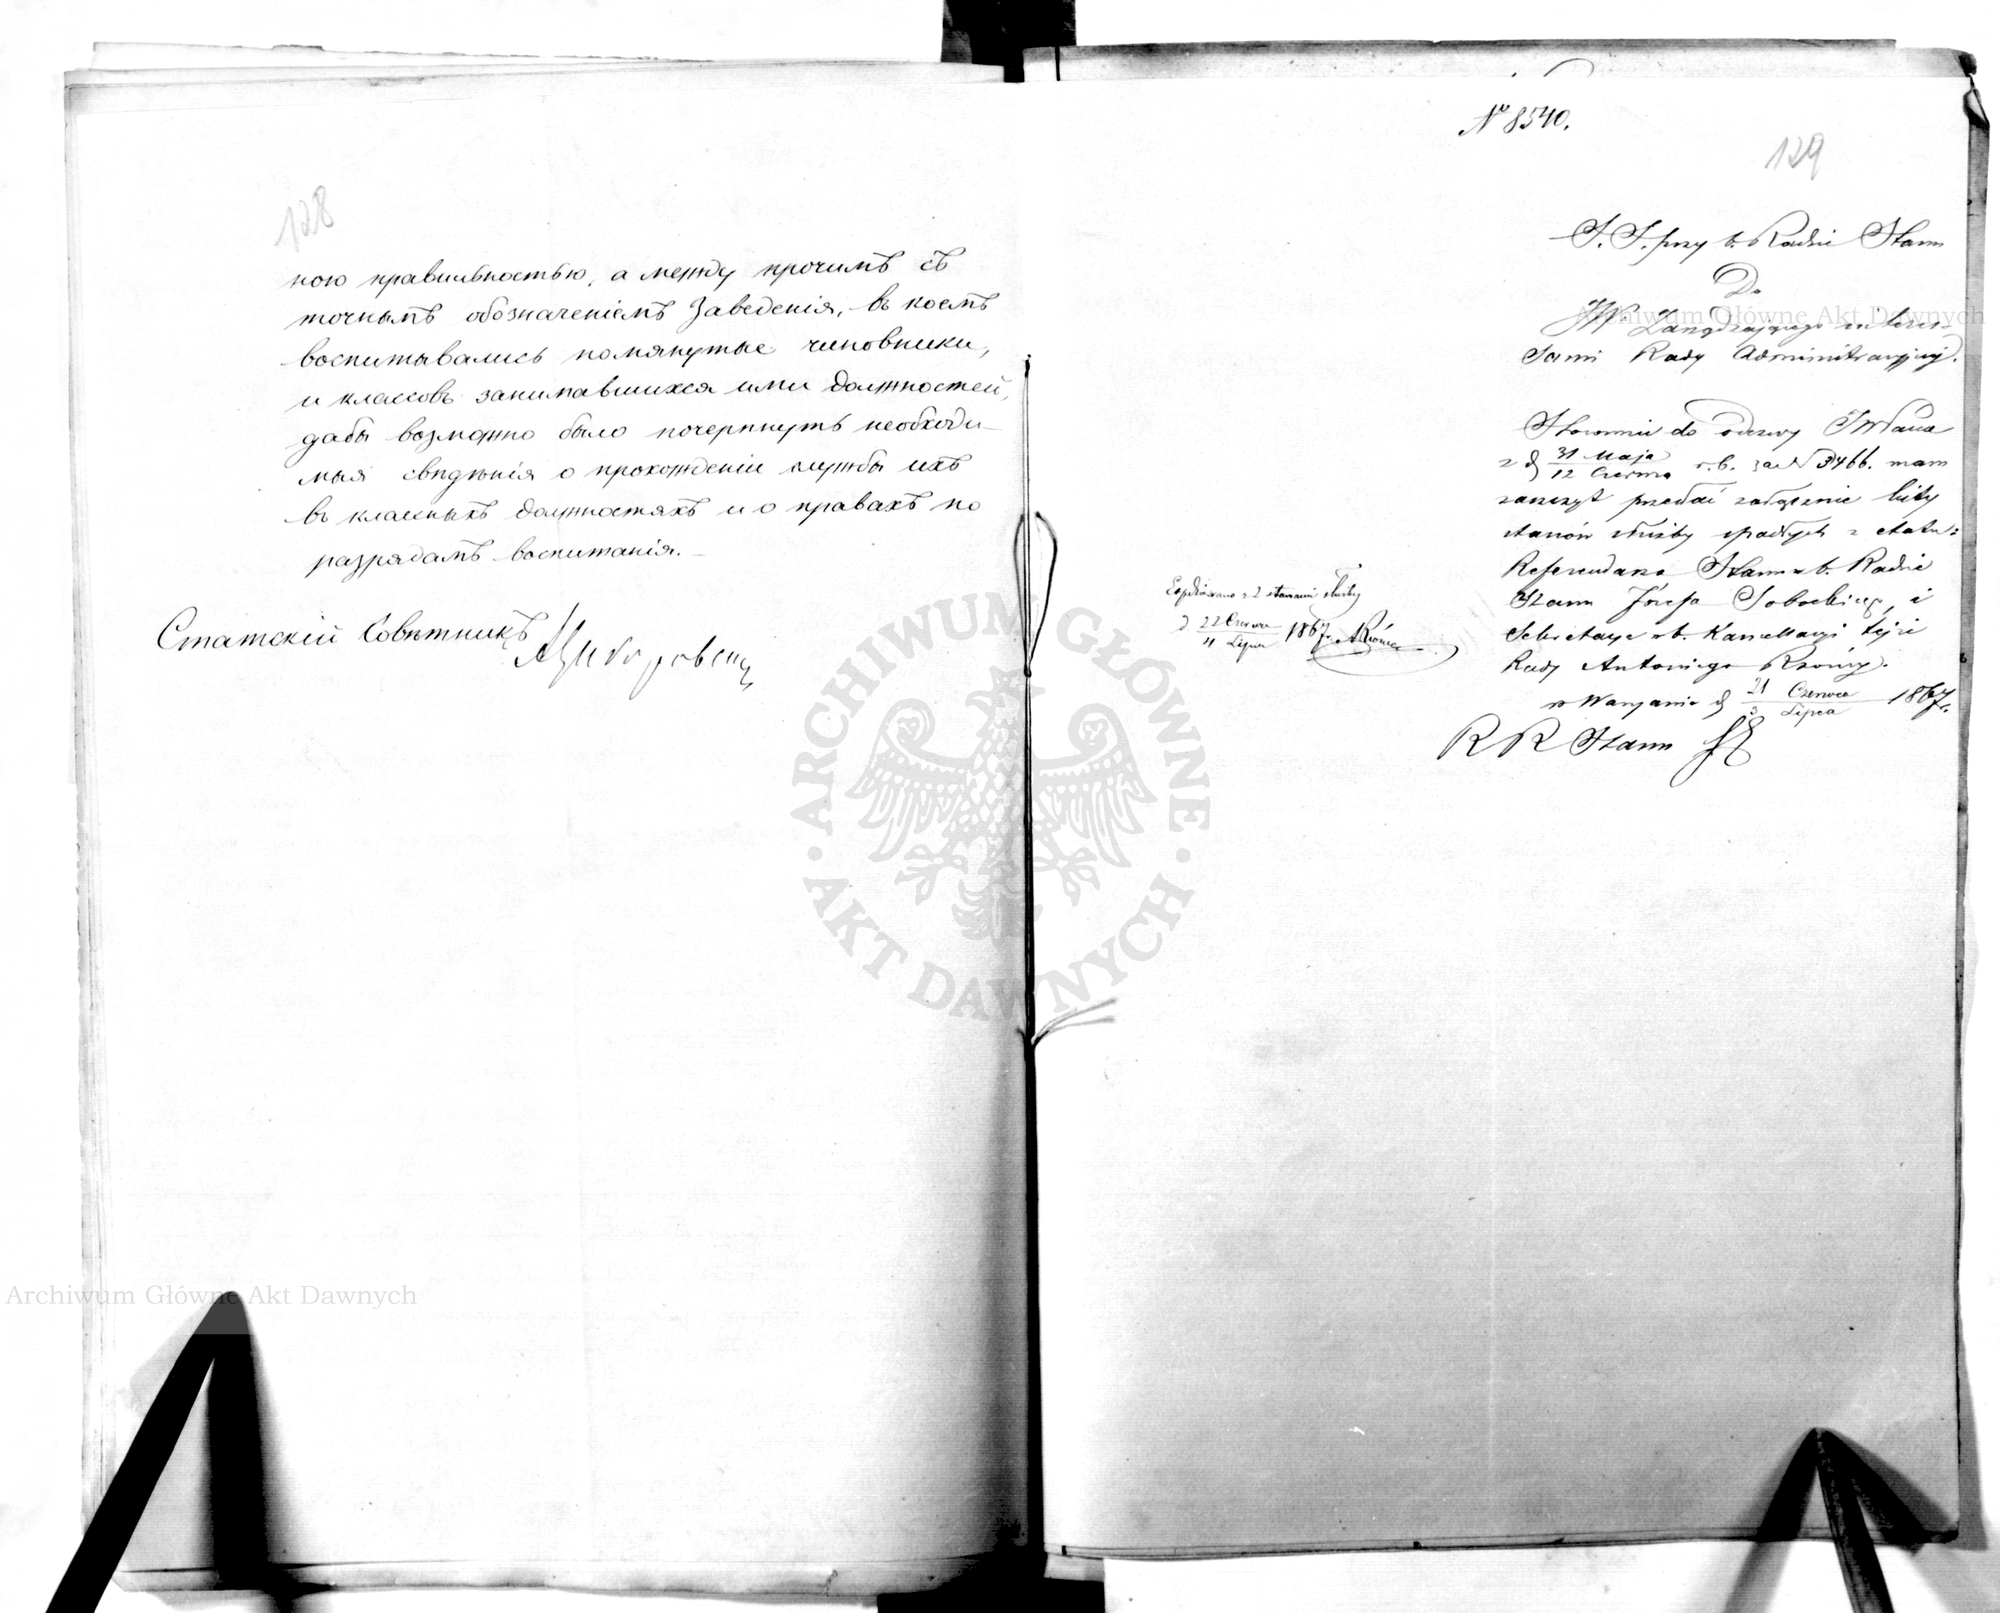 128
ною правильностью, а между прочимъ съ
точнымъ обозначеніемъ Заведенія, въ коемъ
воспитывались помянутые чиновники,
и классовъ занимавшихся ими должностей,
дабы возможно было почерпнуть необходи-
мыя свѣдѣнія о прохожденіи службы ихъ
въ классныхъ должностяхъ и о правахъ по
разрядамъ воспитанія.
Статскій Совѣтникъ
№ 8540.
129
S. S. przy b. Radzie Stanu
Do
JW. Zarządzającego interes-
sami Rady Administracyjnej.
Stosownie do odezwy JW Pana
z d. 31 Maja / 12 Czerwca r. b. za N 3466. mam
zaszczyt przesłać załącznie listy
stanów służby spadłych z etatu:
Referendarza Stanu w b. Radzie
Stanu Józefa Sobockiego, i
Sekretarza w b. Kancellaryi tejże
Rady Antoniego Rzońcy.
w Warszawie d. 21 Czerwca / 3 Lipca 1867 r.
R R Stanu
Expedyowano z 2 stanami służby
d 22 Czerwca / 4 Lipca 1867 r. ARzońca
ARCHIWUM GŁÓWNE
AKT DAWNYCH
Archiwum Główne Akt Dawnych
Archiwum Główne Akt Dawnych